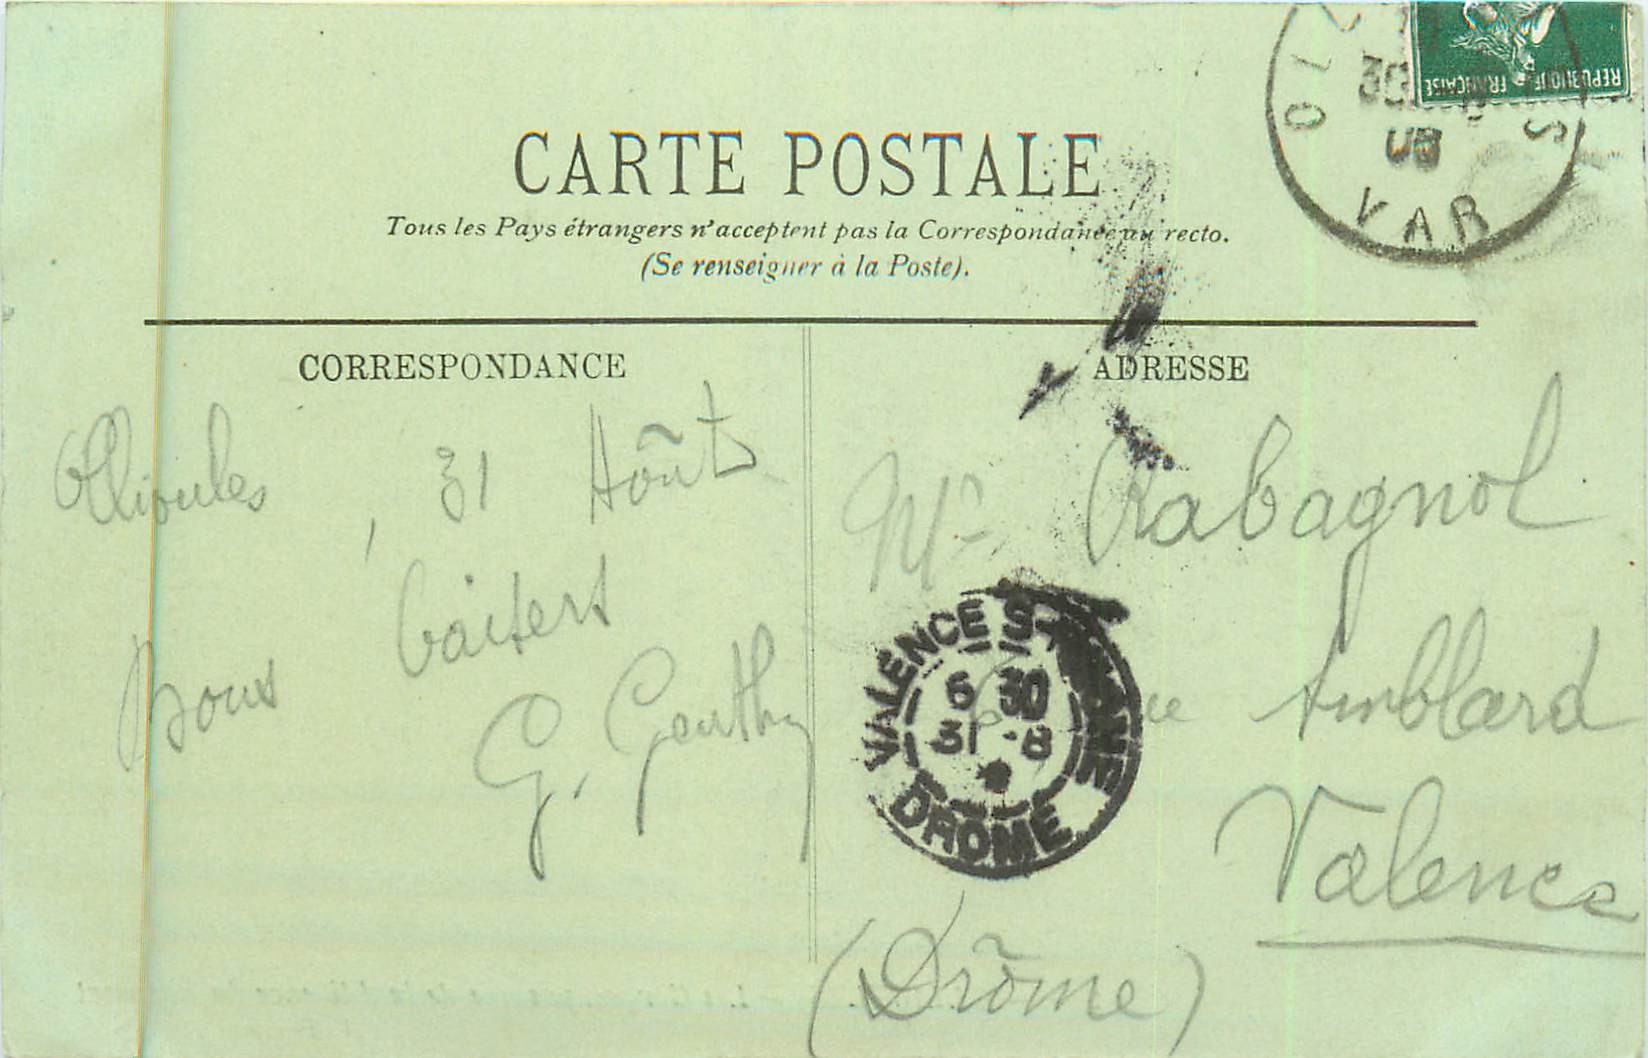 CARTE POSTALE
Tous les Pays étrangers n'acceptent pas la Correspondance au recto.
(Se renseigner à la Poste).
CORRESPONDANCE
Ollioules, 31 Août
Bons baisers
G. Gauthy
ADRESSE
Mr Rabagnol
Amblard
Valence
(Drôme)
VALENCE S-RHONE
6 30
31 - 8
DROME
VAR
REPUBLIQUE FRANÇAISE